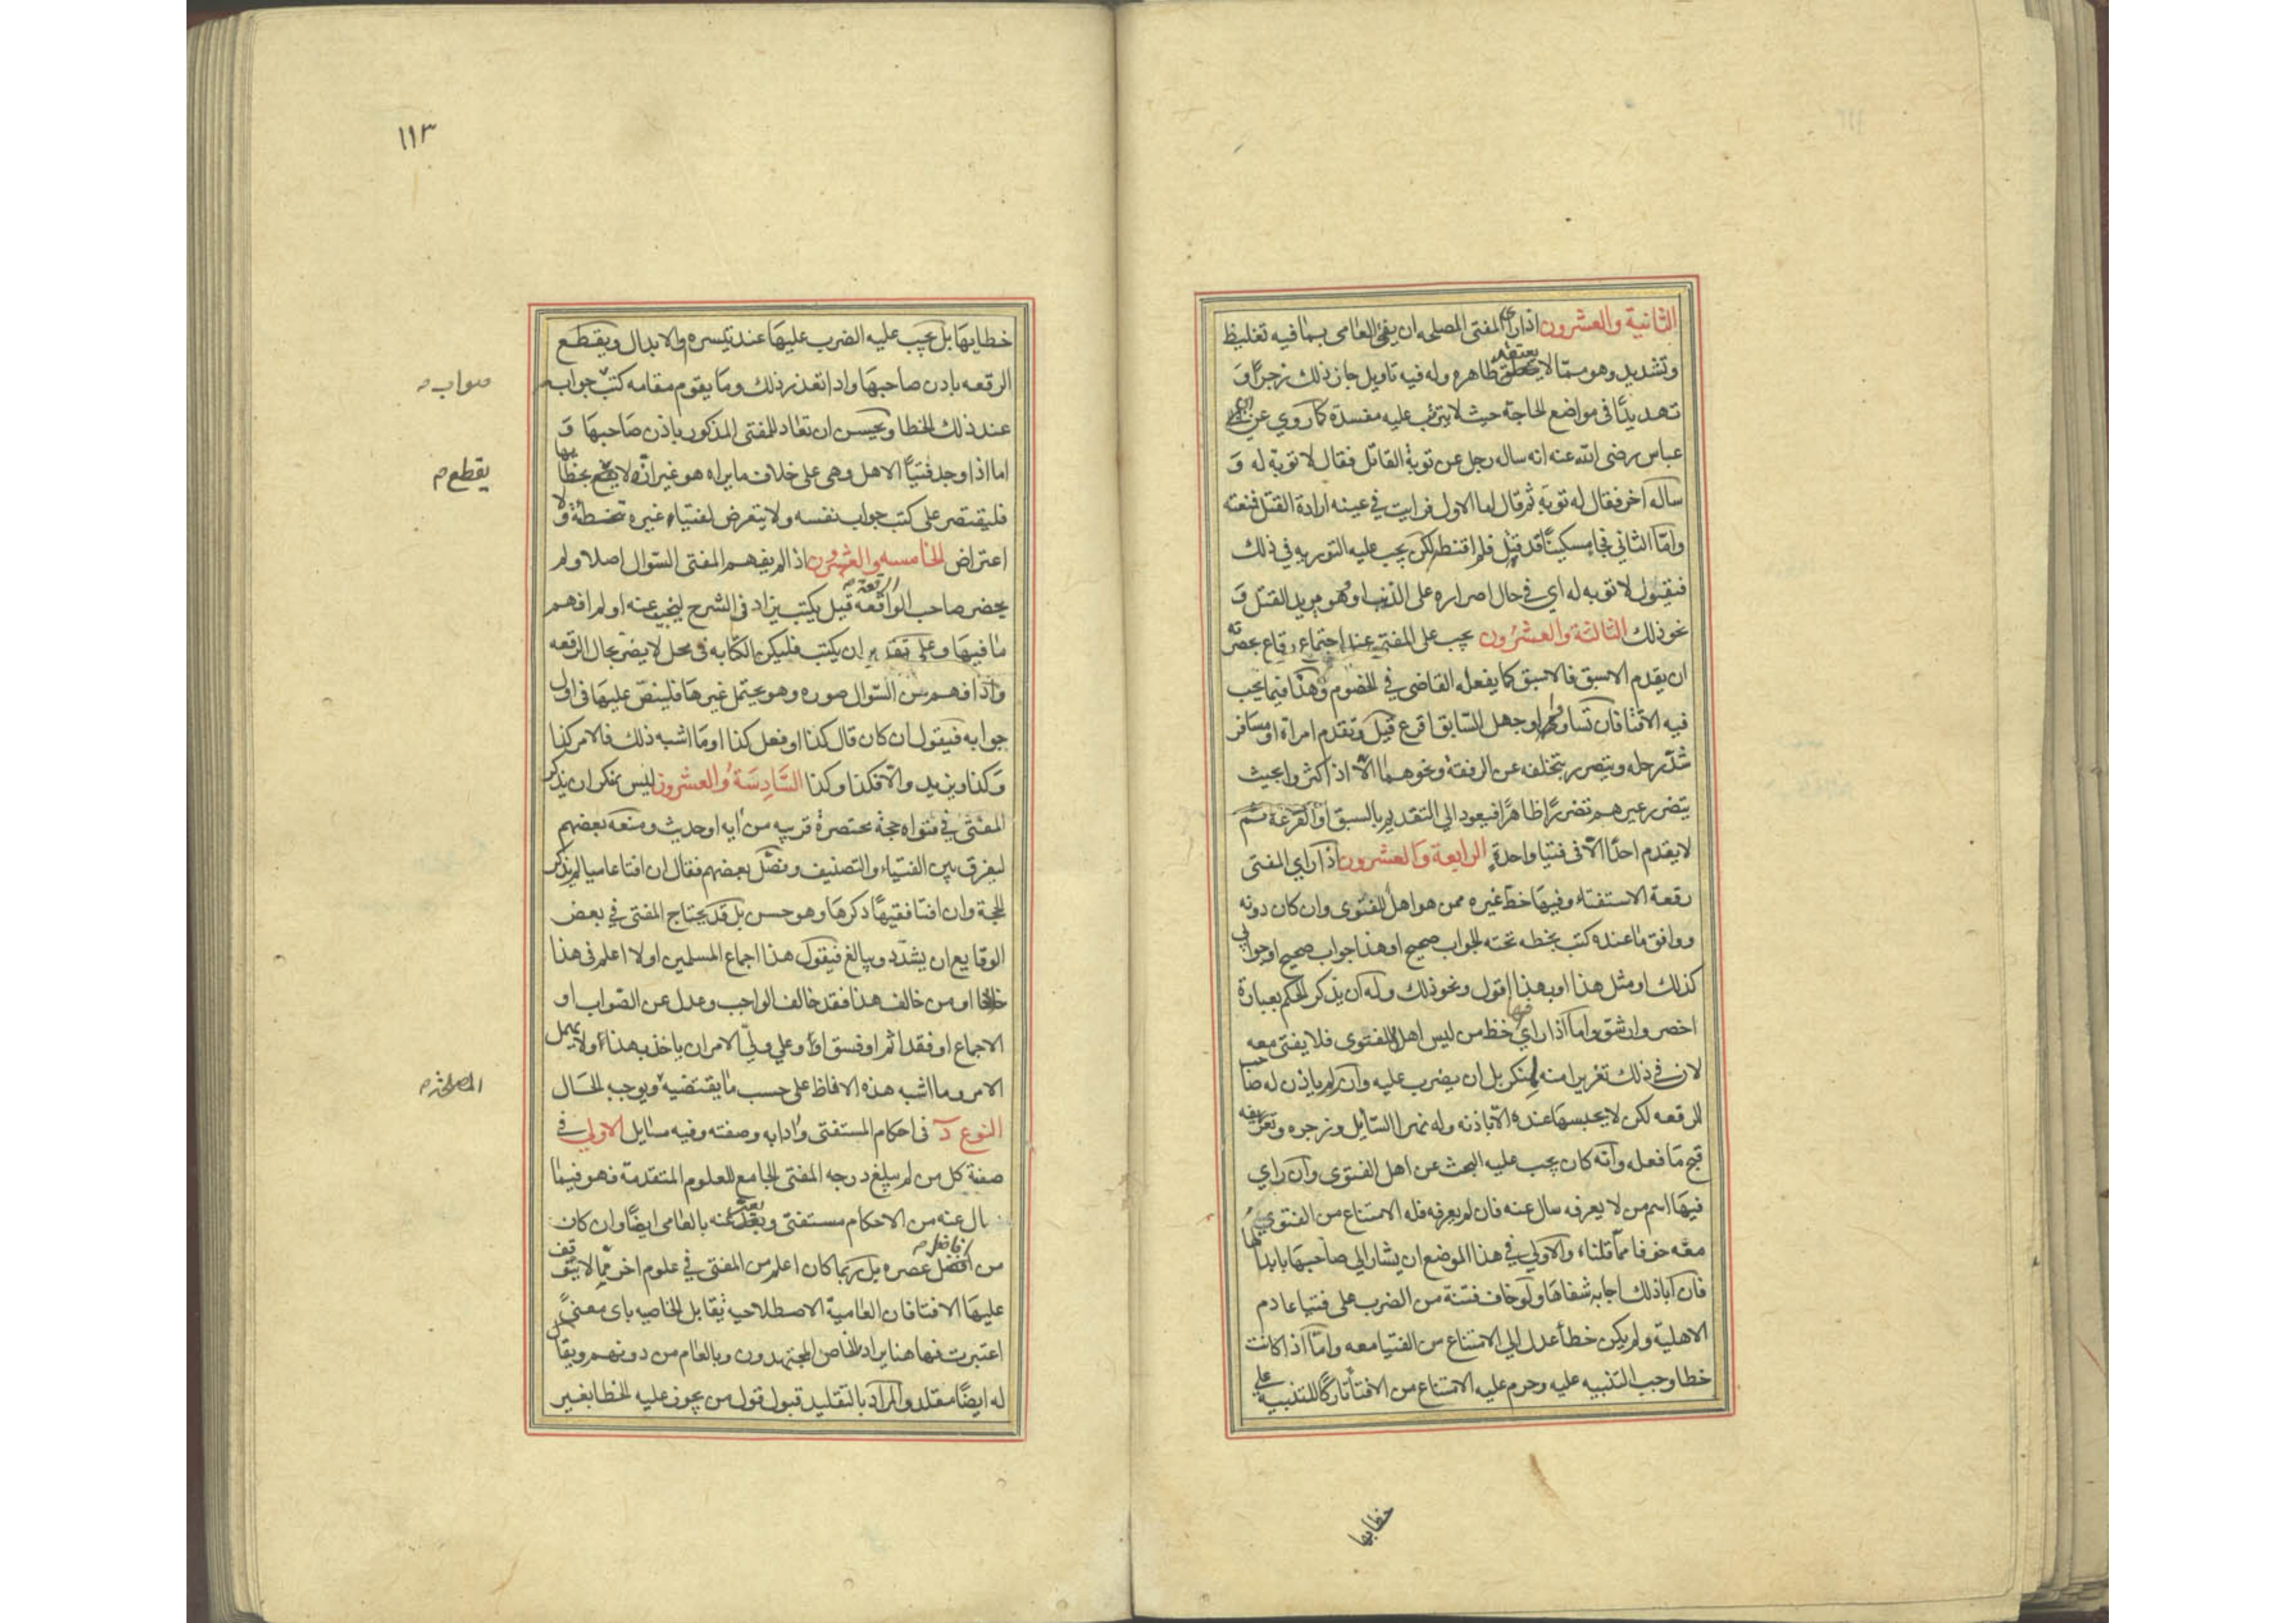 الثانية والعشرون اذا رأى المفتى المصلحه ان يفتى العامى بما فيه تغليظ
وتشديد وهو ممّا لا يعتقد ظاهره وله فيه تاويل جاز ذلك زجرًا وَ
تهديدًا فى مواضع الحاجة حيث لا يترتب عليه مفسدة كما روي عن ابن
عباس رضى الله عنه انه ساله رجل عن توبة القاتل فقال لا توبة له وَ
ساله آخر فقال له توبَه ثم قال اما الاول فرايت في عينه ارادة القتل فمنعته
وامّا الثاني فجاء مسكينًا قد قتل فلم اقنطه لكن يجب عليه التوريه في ذلك
فيقول لا توبه له اي في حال اصراره على الذنب او هو يريد القتل وَ
نحو ذلك الثالثة والعشرون يجب على المفتى عند اجتماع رقاع بحضرته
ان يقدم الاسبق فالاسبق كما يفعله القاضى في الخصوم وهذا فيما يجب
فيه الافتا فان تساووا او جهل السّابق اقرع قيل وتقدم امراة او مسافر
شدّ رحله ويتضرر بتخلفه عن الرفقة ونحوهما الّا اذا كثروا بحيث
يتضرر غيرهم تضررًا ظاهرًا فيعود الي التقديم بالسبق او القرعة ثم
لا يقدم احدًا الّا فى فتيا واحدة الرابعة والعشرون اذا راي المفتى
رقعة الاستفتاء وفيها خط غيره ممن هو اهل للفتوى وان كان دونه
ووافق ما عنده كتب بخطه تحته الجواب صحيح او هذا جواب صحيح او جوابي
كذلك او مثل هذا او بهذا اقول ونحو ذلك وله ان يذكر الحكم بعبارة
اخصر وارشق واما اذا راي فيها خط من ليس اهلا للفتوى فلا يفتى معه
لان في ذلك تقريرا منه لمنكر بل ان يضرب عليه وان لم ياذن له صاحب
الرقعه لكن لا يحبسها عنده الّا باذنه وله نهر السّايل وزجره وتعريفه
قبح ما فعله وانّه كان يجب عليه البحث عن اهل الفتوى وان راي
فيها اسم من لا يعرفه سال عنه فان لم يعرفه فله الامتناع من الفتوي
معه خوفا ممّا قلناه والاولي في هذا الموضع ان يشار الي صاحبها بابدالها
فان ابا ذلك اجابه شفاها ولو خاف فتنة من الضرب على فتيا عادم
الاهليّة ولم يكن خطأ عدل الي الامتناع من الفتيا معه وامّا اذا كانت
خطا وجب التنبيه عليه وحرم عليه الامتناع من الافتاء تاركًا للتنبيه علي
خطايها
١١٣
خطايها بل يجب عليه الضرب عليها عند تيسره والابدال ويقطع
الرقعه باذن صاحبها واذا تعذر ذلك وما يقوم مقامه كتب جوابه
صواب
عند ذلك الخطا ويحسن ان تعاد للمفتى المذكور باذن صاحبها وَ
اما اذا وجد فتيا الاهل وهى على خلاف ما يراه هو غير انّه لا يقطع بخطائها
يقطع م
فليقتصر على كتب جواب نفسه ولا يتعرض لفتياء غيره تخطئة ولا
اعتراض الخامسه والعشرون اذا لم يفهم المفتى السّوال اصلا ولم
يحضر صاحب الواقعه الرقعة قيل يكتب يزاد فى الشرح ليجيب عنه او لم افهم
ما فيها وعلى تقدير ان يكتب فليكن الكتابه فى محل لا يضر بحال الرقعه
واذا فهم من السّوال صوره وهو يحتمل غيرها فلينصّ عليها فى اول
جوابه فيقول ان كان قال كذا او فعل كذا او ما اشبه ذلك فالامر كذا
وكذا ويزيد والّا فكذا وكذا السّادسَة والعشرون ليس بمنكر ان يذكر
المفتى في فتواه حجة مختصرة قريبه من ايه او حديث ومنعه بعضهم
ليفرق بين الفتياء والتصنيف وفصّل بعضهم فقال ان افتا عاميا لم يذكر
الحجة وان افتا فقيهًا ذكرها وهو حسن بل قد يحتاج المفتى في بعض
الوقايع ان يشدّد ويبالغ فيقول هذا اجماع المسلمين او لا اعلم فى هذا
خلافا او من خالف هذا فقد خالف الواجب وعدل عن الصّواب او
الاجماع او فقد اثم او فسق او وعلي وليّ الامر ان ياخذ بهذا او لا يهمل
الامر وما اشبه هذه الالفاظ على حسب ما يقتضيه ويوجبه الحَال
المصلحة م
النوع د فى احكام المستفتى وادابه وصفته وفيه مسايل الاولي في
صفة كل من لم يبلغ درجه المفتى الجامع للعلوم المتقدمة فهو فيما
يسال عنه من الاحكام مستفتى ويعبر عنه بالعامى ايضًا وان كان
من افضل افاضل م عصره بل ربما كان اعلم من المفتى في علوم اخر ممّا لا يتوقف
عليها الافتا فان العامية الاصطلاحيه تقابل الخاصيه باى معنىً
اعتبرت فهاهنا يراد بالخاص المجتهدون وبالعام من دونهم ويقال
له ايضًا مقلد والمراد بالتقليد قبول قول من يجوز عليه الخطا بغير